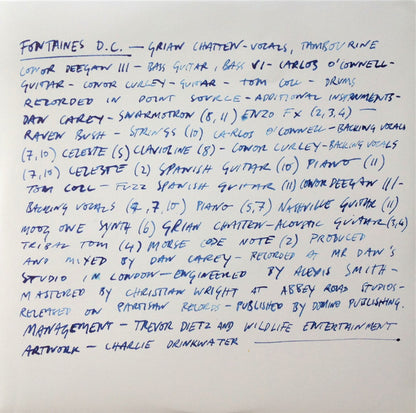 FONTAINES D.C. — GRIAN CHATTEN - VOCALS, TAMBOURINE
CONOR DEEGAN III - BASS GUITAR, BASS VI - CARLOS O'CONNELL -
GUITAR - CONOR CURLEY - GUITAR - TOM COLL - DRUMS
RECORDED IN POINT SOURCE - ADDITIONAL INSTRUMENTS -
DAN CAREY - SWARMOTRON (8, 11) ENZO FX (2,3,4) —
RAVEN BUSH - STRINGS (10) CARLOS O'CONNELL - BACKING VOCALS
(7,10) CELESTE (5) CLAVIOLINE (8) - CONOR CURLEY - BACKING VOCALS
(7,10) CELESTE (2) SPANISH GUITAR (10) PIANO (11)
TOM COLL - FUZZ SPANISH GUITAR (11) CONOR DEEGAN III -
BACKING VOCALS (2,7,10) PIANO (5,7) NASHVILLE GUITAR (11)
MOOG ONE SYNTH (6) GRIAN CHATTEN - ACOUSTIC GUITAR (3,4)
TRIBAL TOM (4) MORSE CODE NOTE (2) PRODUCED
AND MIXED BY DAN CAREY - RECORDED AT MR DAN'S
STUDIO IN LONDON - ENGINEERED BY ALEXIS SMITH -
MASTERED BY CHRISTIAN WRIGHT AT ABBEY ROAD STUDIOS -
RELEASED ON PARTISAN RECORDS - PUBLISHED BY DOMINO PUBLISHING.
MANAGEMENT - TREVOR DIETZ AND WILDLIFE ENTERTAINMENT
ARTWORK - CHARLIE DRINKWATER